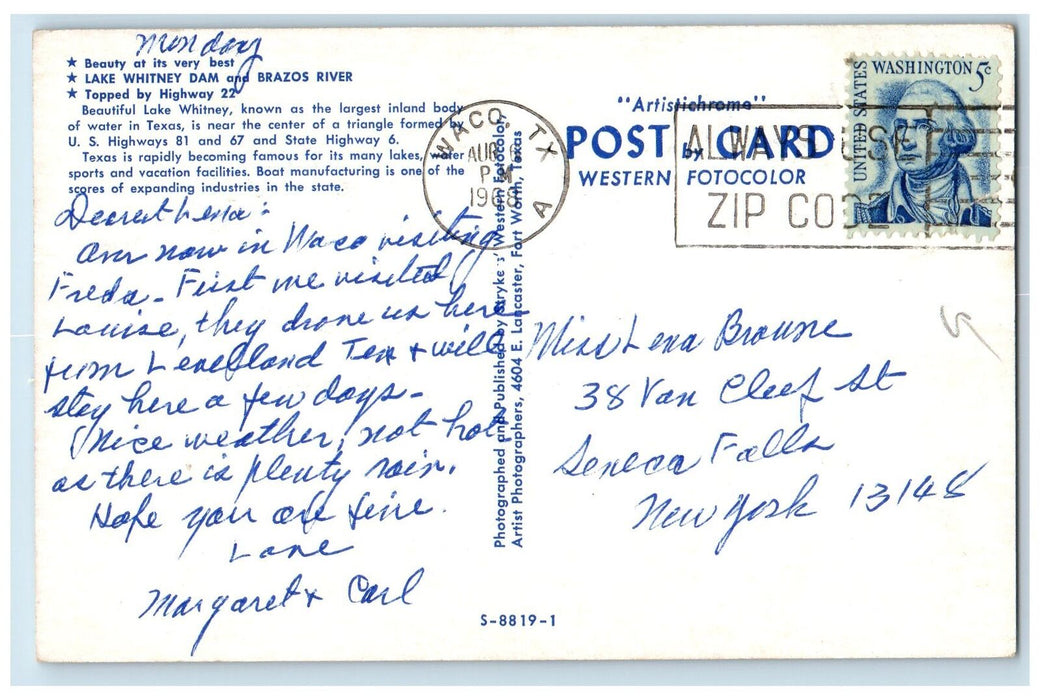 Monday
★ Beauty at its very best
★ LAKE WHITNEY DAM and BRAZOS RIVER
★ Topped by Highway 22
Beautiful Lake Whitney, known as the largest inland body
of water in Texas, is near the center of a triangle formed by
U. S. Highways 81 and 67 and State Highway 6.
Texas is rapidly becoming famous for its many lakes, water
sports and vacation facilities. Boat manufacturing is one of the
scores of expanding industries in the state.
Dearest Lena:
Are now in Waco visiting
Freda - First we visited
Louise, they drove us here
from Levelland Tex + will
stay here a few days -
Nice weather, not hot
as there is plenty rain.
Hope you are fine.
Love
Margaret + Carl
WACO, TX
AUG
PM
1968
A
Photographed and Published by Stryker's Western Fotocolor
Artist Photographers, 4604 E. Lancaster, Fort Worth, Texas
"Artistichrome"
POST CARD
by
WESTERN FOTOCOLOR
ALWAYS USE
ZIP CODE
UNITED STATES
WASHINGTON 5c
Miss Lena Browne
38 Van Cleef St
Seneca Falls
New York 13148
S-8819-1